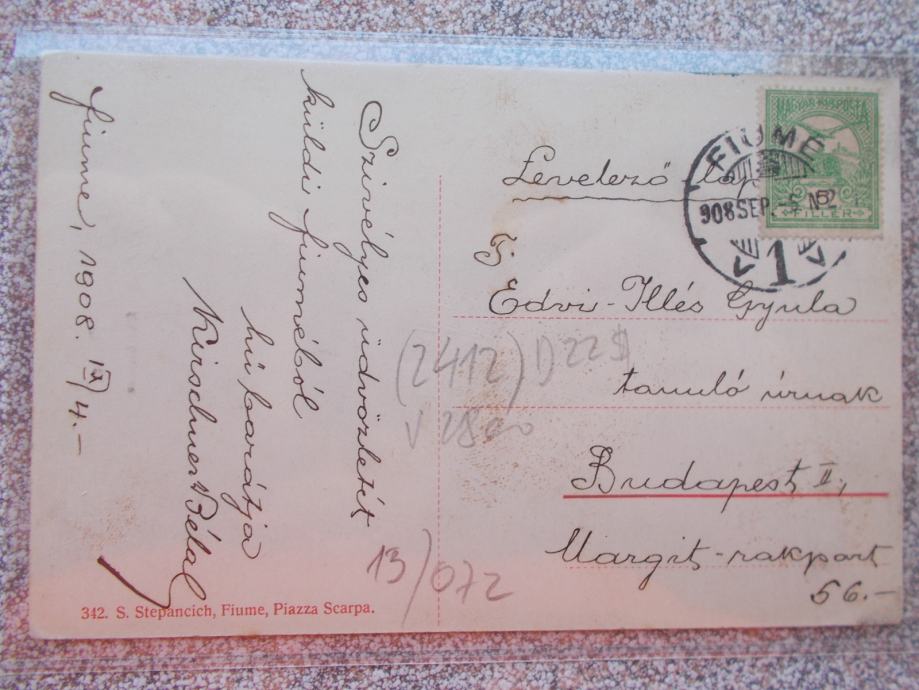 Fiume, 1908. IX/4.-
Szivélyes üdvözletét
küldi fiuméból
hű barátja
Kirschner Béla
Levelező-lap
MAGYAR KIR. POSTA
FILLÉR
FIUME
908 SEP.
1
Tj
Edvi-Illés Gyula
tanuló úrnak
Budapest II,
Margit-rakpart
56.-
(2412) D 22 $
V 2800
13/072
342. S. Stepancich, Fiume, Piazza Scarpa.